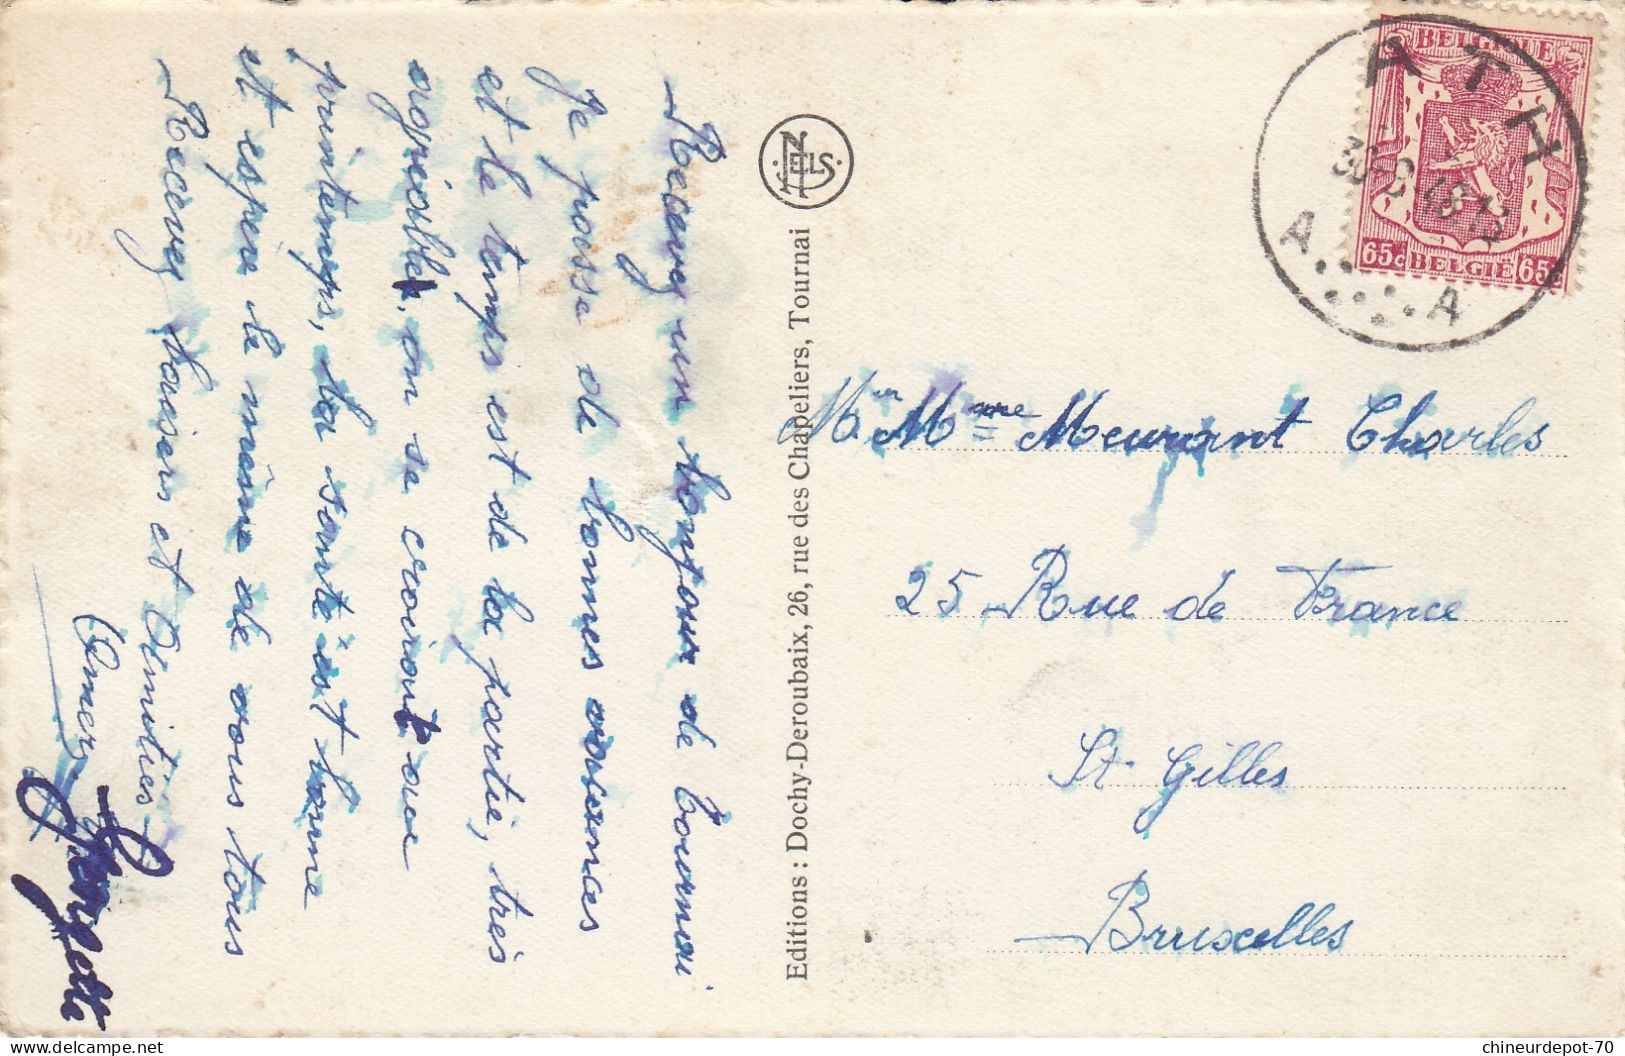 Recevez un bonjour de Tournai
Je passe de bonnes vacances
et le temps est de la partie, très
agréable, on se croirait au
printemps, la santé est bonne
et espère le même de vous tous
Recevez baisers et Amitiés
Omer.
Georgette
NELS
Editions : Dochy-Deroubaix, 26, rue des Chapeliers, Tournai
BELGIQUE
65c BELGIE 65c
ATH
A A
Mr Mme Meurant Charles
25 Rue de France
St Gilles
Bruxelles
delcampe.net
chineurdepot-70